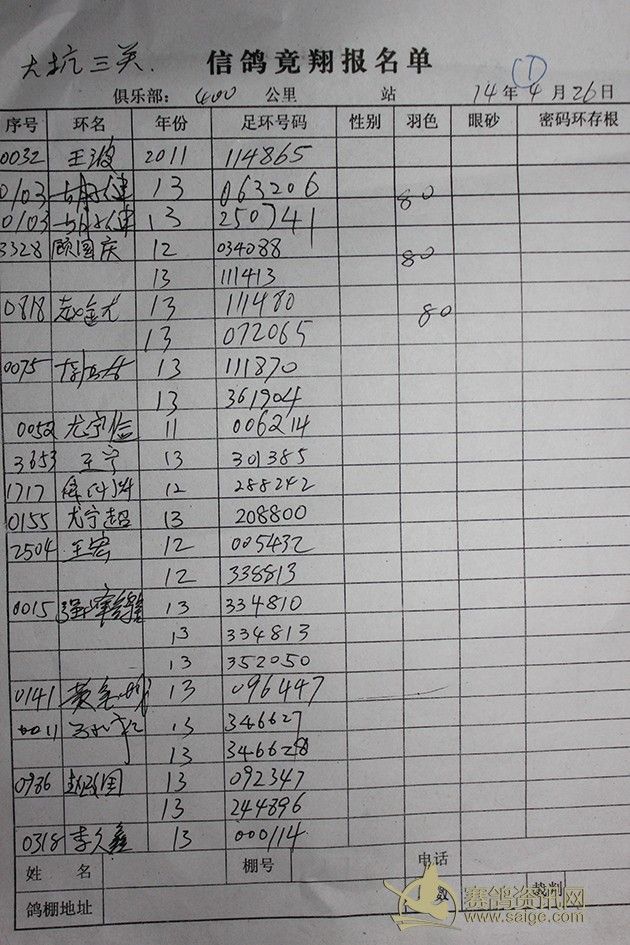 大坑三关.
信鸽竞翔报名单
①
俱乐部： 400 公里 站 14年4月26日
序号 环名 年份 足环号码 性别 羽色 眼砂 密码环存根
0032 王波 2011 114865
0103 13 063206 80
0103 13 250741
3328 顾国庆 12 034088 80
13 111413
0818 13 111480 80
13 072065
0075 13 111870
13 361904
0052 尤宁信 11 006214
3653 王宁 13 301385
1717 12 288242
0155 尤宁超 13 208800
2504 王宏 12 005432
12 338813
0015 13 334810
13 334813
13 352050
0141 13 096447
0011 13 346627
13 346628
0986 赵国 13 092347
13 244896
0318 李久鑫 13 000114
姓名 棚号 电话
鸽棚地址 数 裁判
赛鸽资讯网
www.saige.com